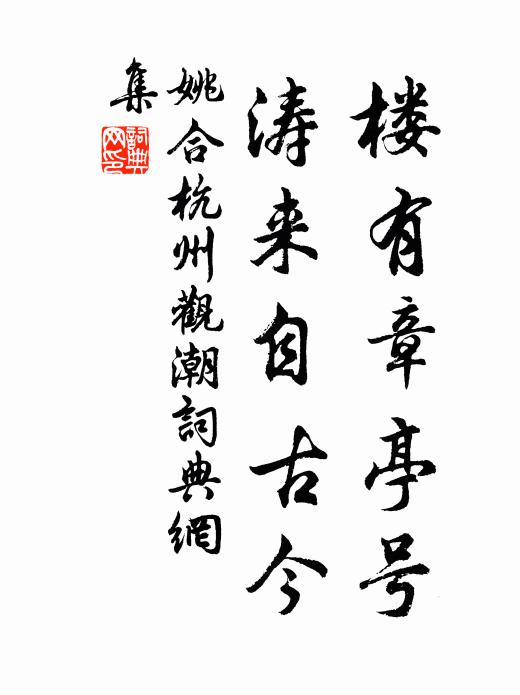 楼有章亭号
涛来自古今
姚合杭州觀潮詞典網
集
詞典网印